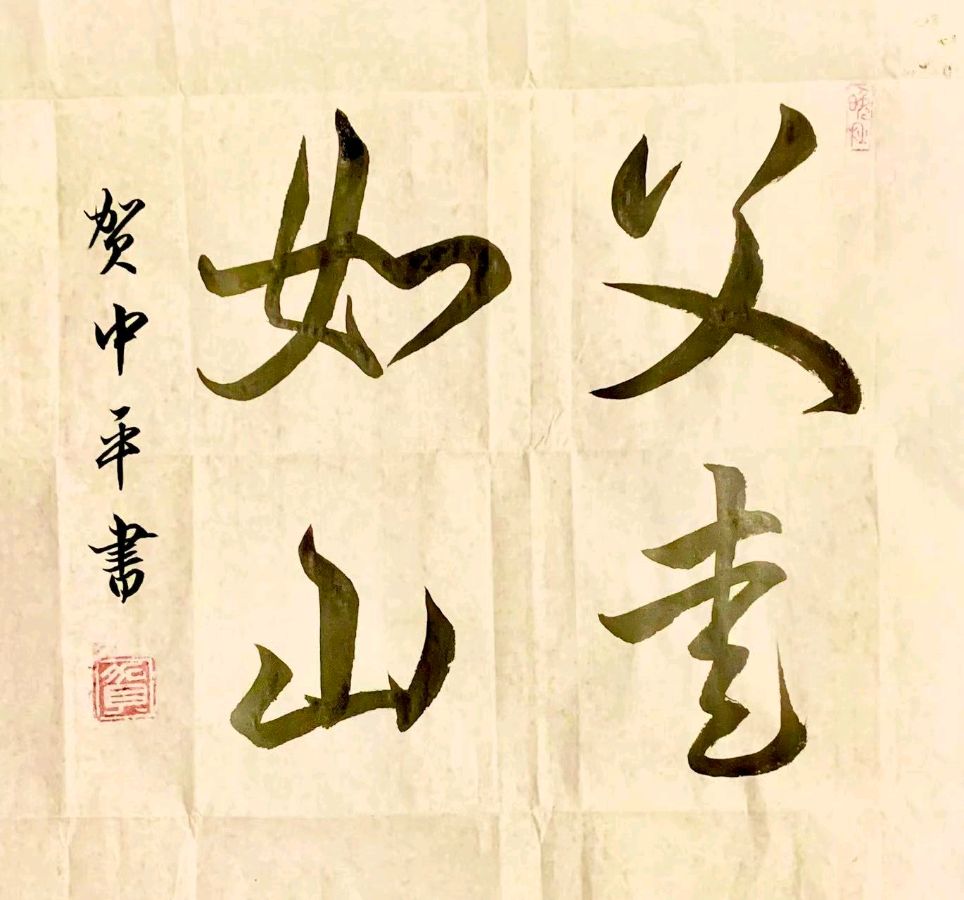 父爱
如山
贺中平書
賀